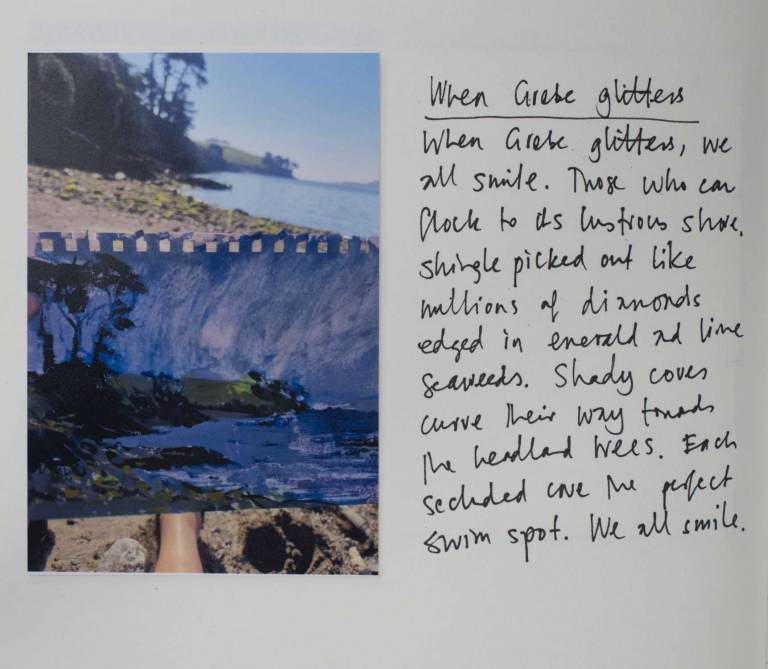 When Grebe glitters
When Grebe glitters, we
all smile. Those who can
flock to its lustrous shore.
Shingle picked out like
millions of diamonds
edged in emerald and lime
seaweeds. Shady coves
curve their way towards
the headland trees. Each
secluded cove the perfect
swim spot. We all smile.